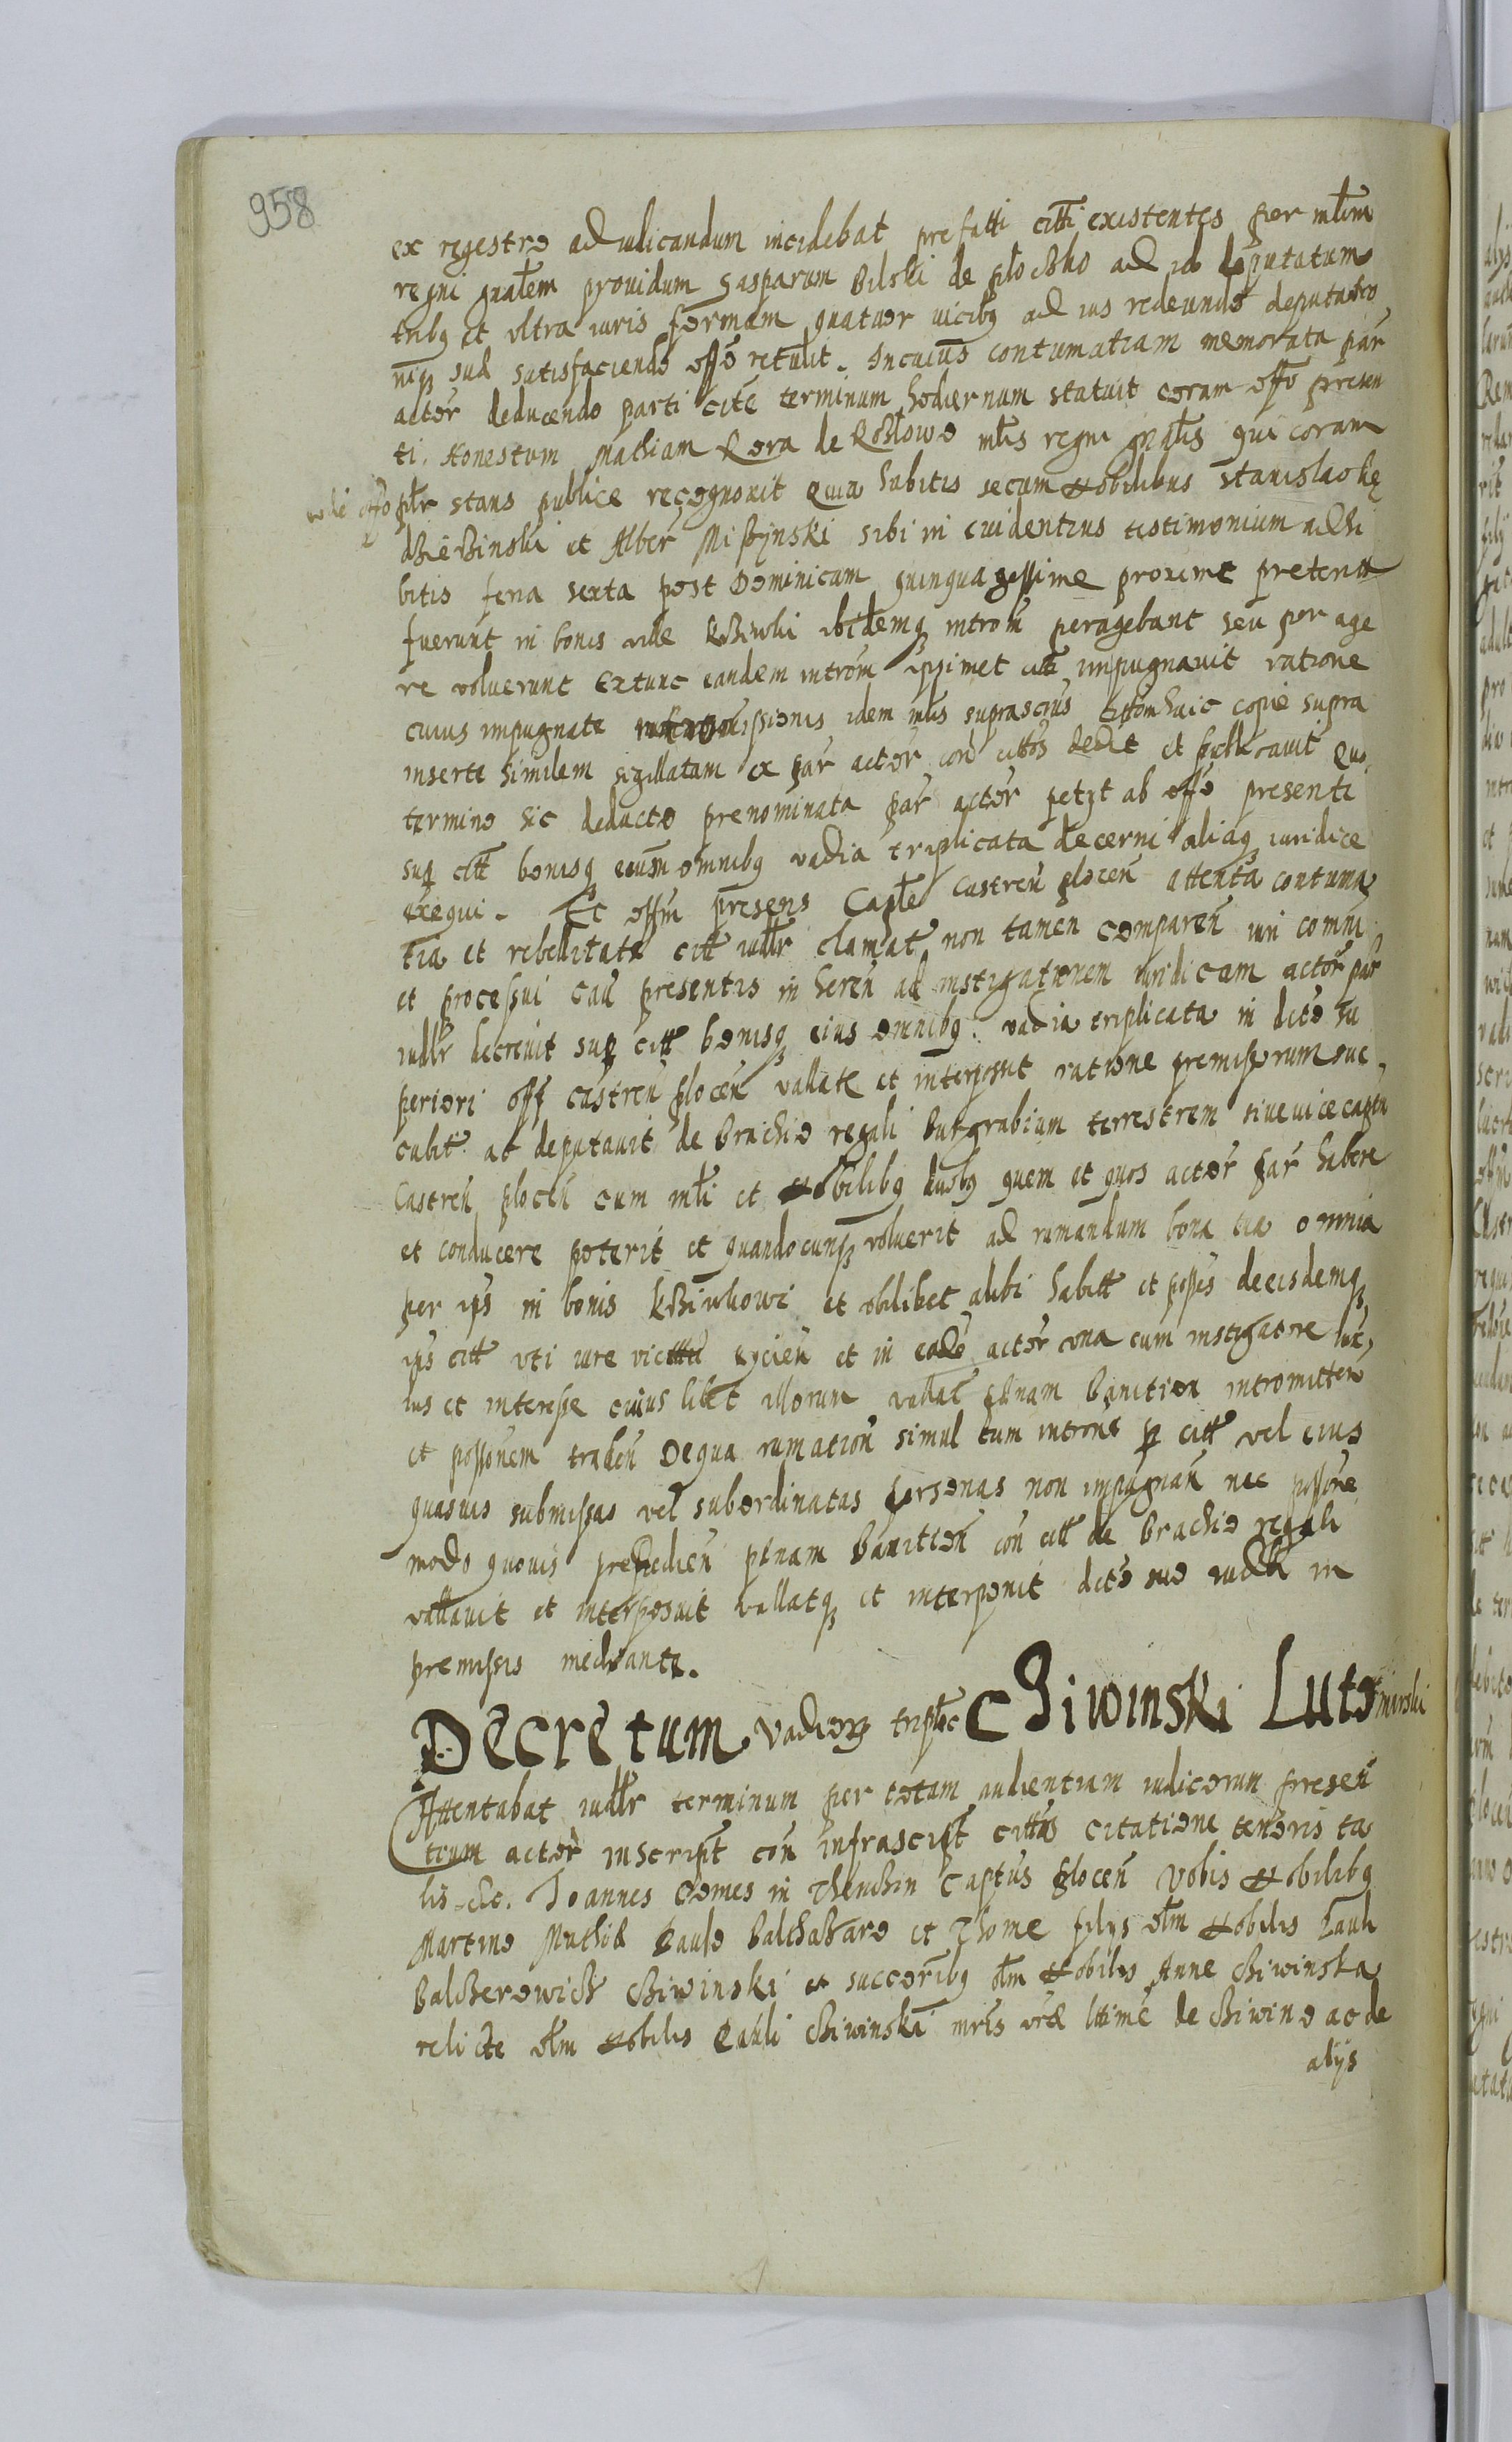 958
ex regestro adiudicandum incidebat prefatti citti existentes per mlem
regni gnalem providum Gasparum Bilski de plocsko ad id deputatum
tribq et vltra iuris formam quatuor vicibq ad ius redeundo deputatto
nisq sud satisfaciendo offo retulit. Incuius contumatiam memorata par
actor deducendo parti citte terminum hodiernum statuit coram offo presen
ti. Honestum Mathiam Kora de Kozlowo mlis regni gnalis qui coram
offo pltr stans publice recognovit quia habitis secum Nobilibus Stanislao kę
dzierzinski et Alber Miszynski sibi in euidentius testimonium adhi
bitis feria sexta post Dominicam quinquagessime proxime preteritt
fuerunt in bonis ville kziwki ibidemq introm peragebant seu per age
re voluerunt Extunc eandem introm ipsimet citt impugnauit ratione
cuius impugnate idem mlis suprascrius cittom huic copie supra
inserte similem sigillatam ex par actor con cittos dedit et publicauit Quo
termino sic deducto prenominata par actor petyt ab offo presenti
sup citt bonisq eorum omnibq vadia triplicata decerni aliaq iuridice
exequi. Et offm presens Caple Castren plocen attenta contuma
tia et rebellitate citt iudltr clamat non tamen comparen iuri comni
et processui cau presentis in heren ad instigationem iuridicam actor par
iudltr decreuit sup citt bonisq eius omnibq vadia triplicata in dicto su
periori off castren plocen vallate et interposuit ratione premissorum suc
cubit ac deputauit de brachio regali Burgrabium terrestrem siue vicecaptu
Castren plocen cum mli et Nobilibq duobq quem et quos actor par habere
et conducere poterit et quandocunq voluerit ad rumandum bona tua omnia
per ips in bonis kziwkowi et vbilibet alibi habitt et posses deeisdemq
ips citt vti iure victtu eycien et in eade actor vna cum instigatore luc
ius et interesse cuius libet illorum vallat penam banition intromitten
et possionem traden Dequa rumation simul tum introne p citt vel eius
quasuis submissas vel subordinatas personas non impugnan nec possone
modo quouis prepedien penam banition con citt de brachio regali
vallauit et interposuit vallatq et interponit dicto suo iudli in
premissis mediante.
Decretum vadiorq triplic Chiwinski Lutomirski
Attentabat iudltr terminum per totam audientiam iudiciorum presen
tium actor inscript con infrascipt cittus citatione tenoris ta
lis &c. Joannes Comes in Thenchin Captus plocen vobis Nobilibq
Martino Mathie Paulo Balthazaro et Thome filys olm Nobilis Pauli
Balcherowicz Chiwinski et succoribq olm Nobilis Anne Chiwinska
relicte olm Nobilis Pauli Chiwinski mris vre lttime de Chiwino ac de
alijs